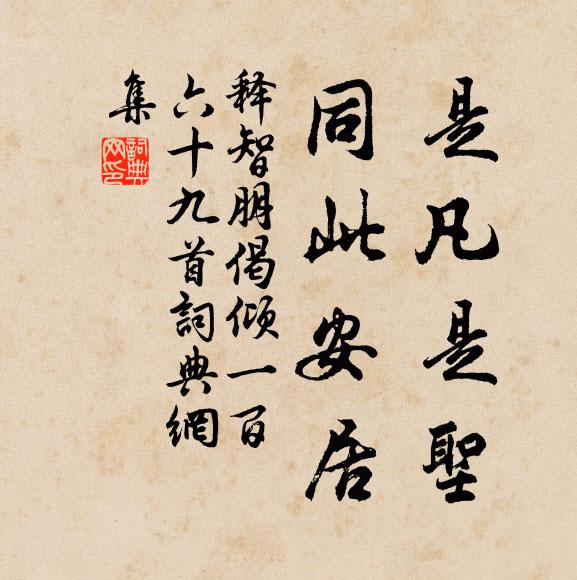 是凡是聖
同此安居
释智朋偈倾一百
六十九首詞典網
集
詞典網印